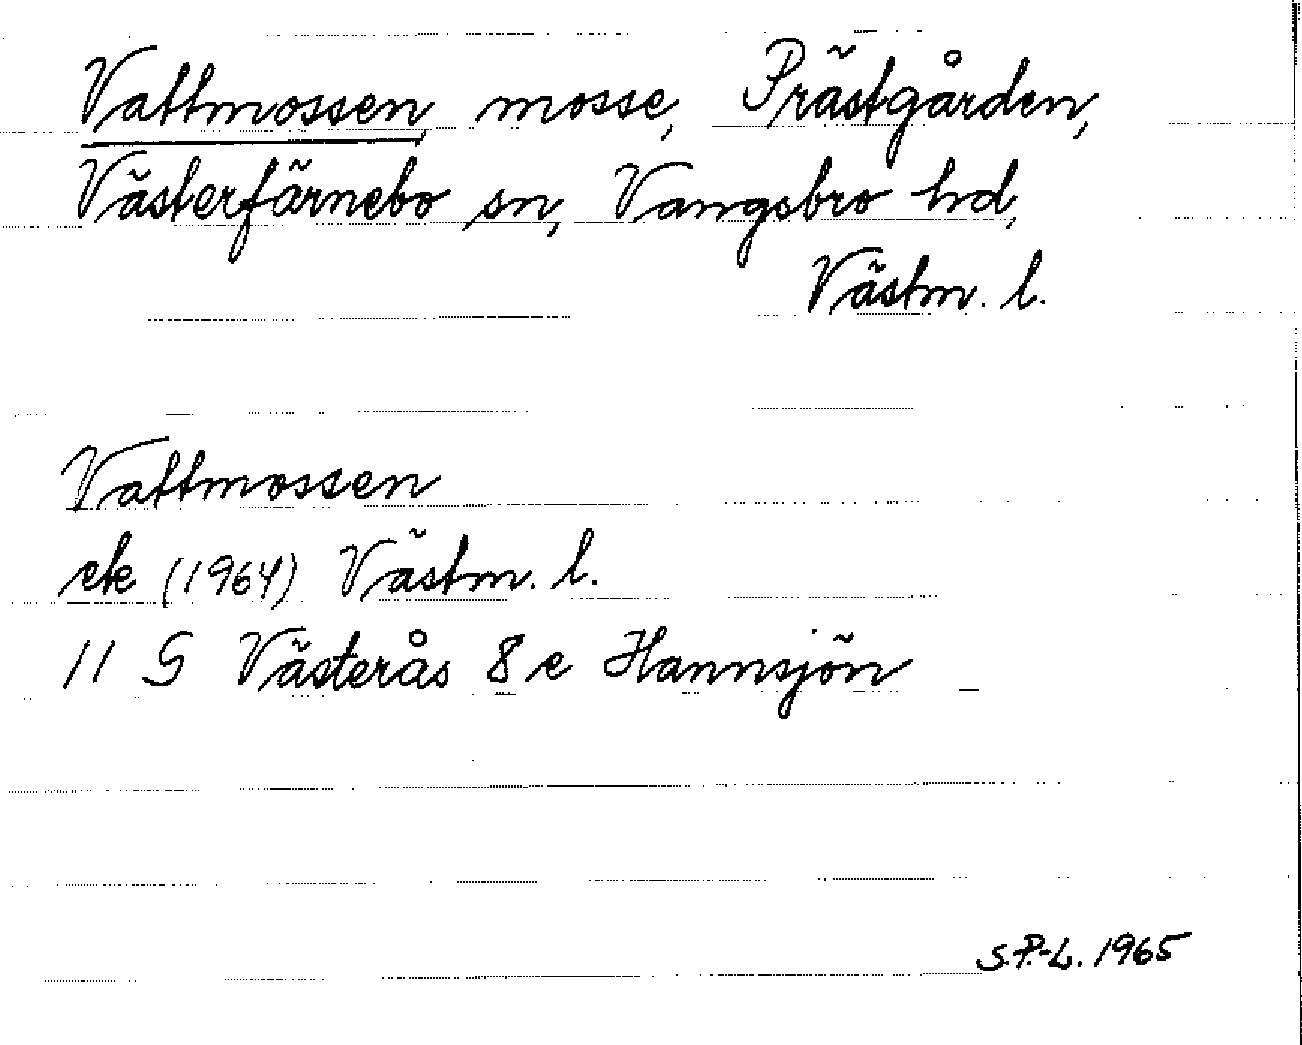 Vattmossen mosse, Prästgården,
Västerfärnebo sn, Vangsbro hd,
Västm. l.
Vattmossen
ek (1964) Västm. l.
11 G Västerås 8 e Hannsjön
S.P.-L. 1965